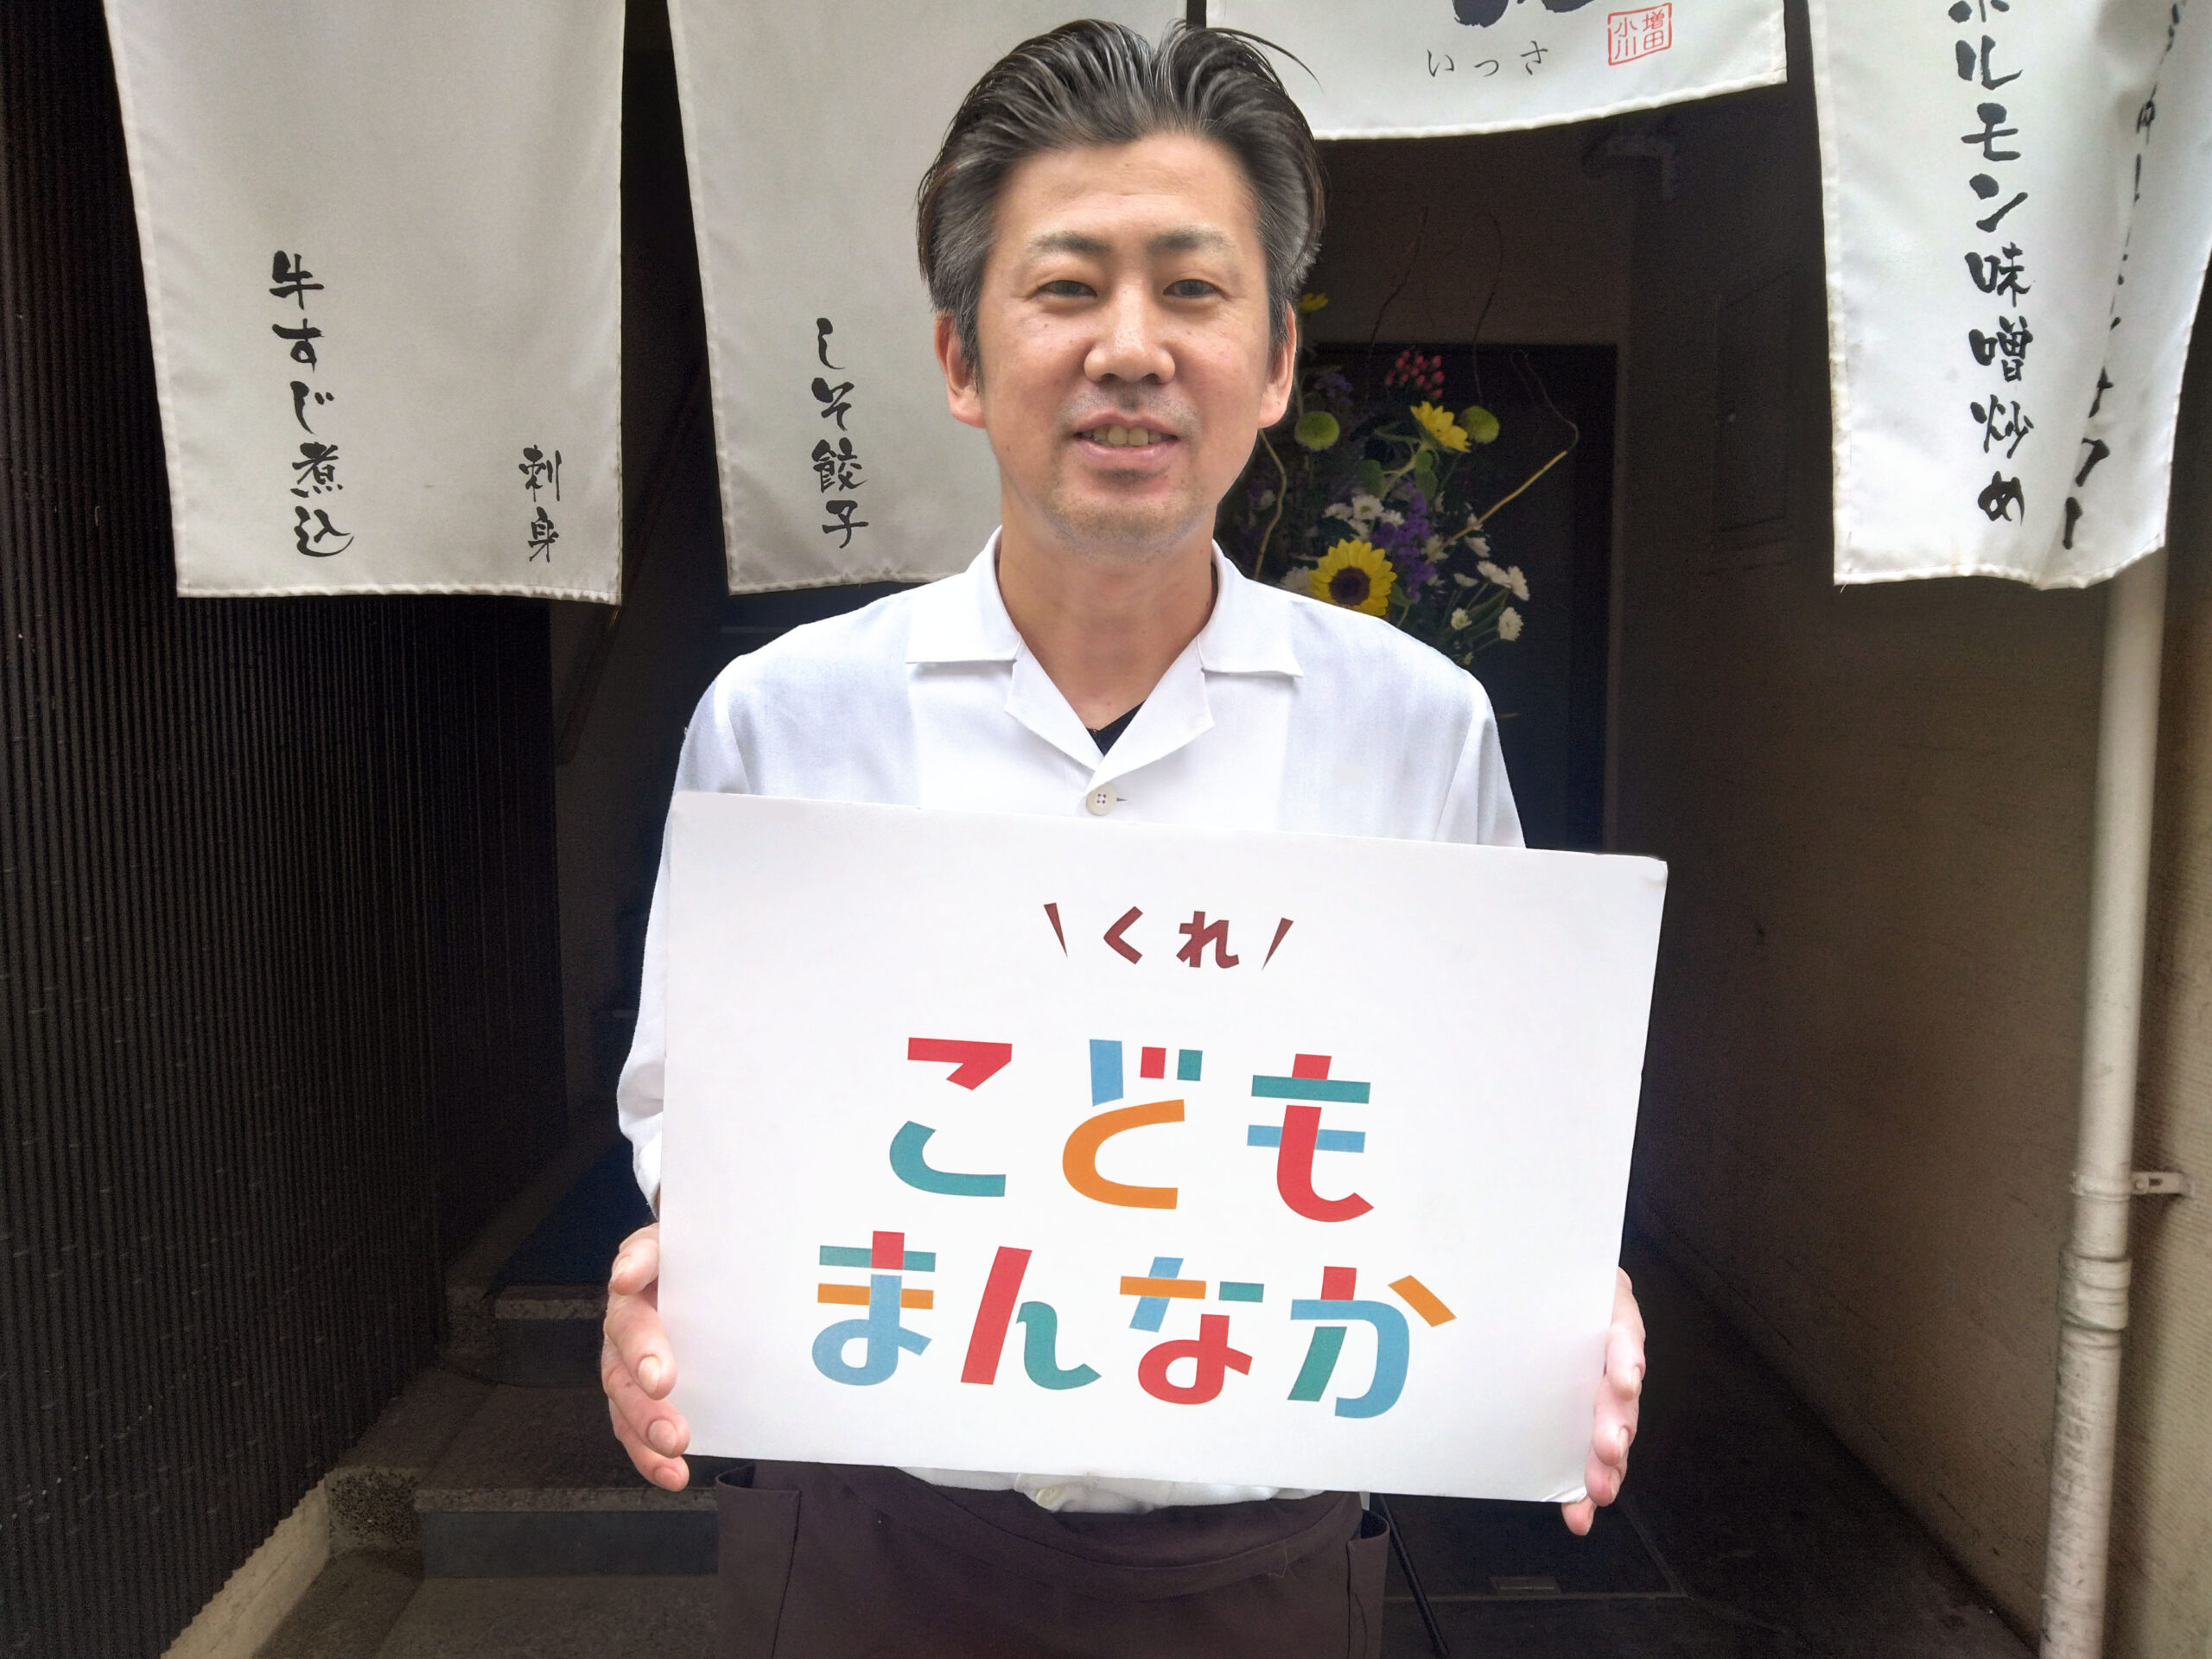 牛すじ煮込
刺身
しそ餃子
いっさ
増田
小川
ホルモン味噌炒め
くれ
こども
まんなか